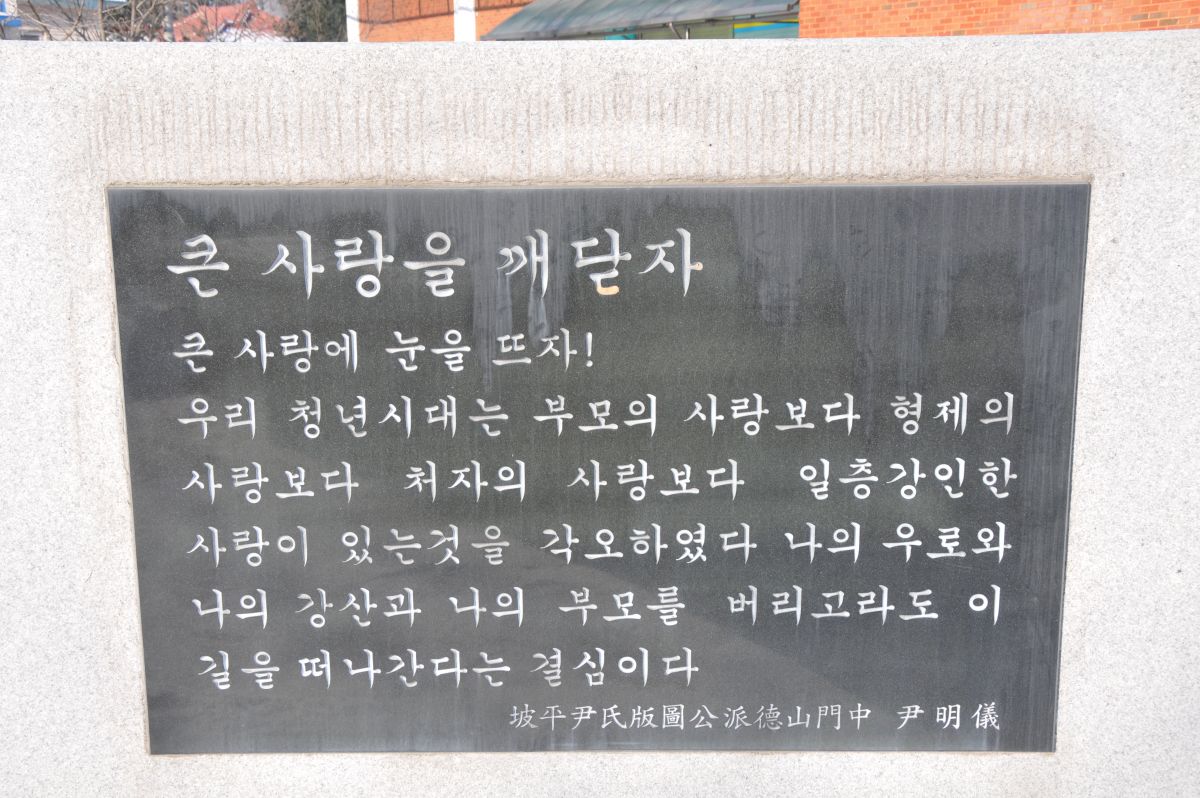 큰 사랑을 깨닫자
큰 사랑에 눈을 뜨자!
우리 청년시대는 부모의 사랑보다 형제의
사랑보다 처자의 사랑보다 일층강인한
사랑이 있는것을 각오하였다 나의 우로와
나의 강산과 나의 부모를 버리고라도 이
길을 떠나간다는 결심이다
坡平尹氏版圖公派德山門中 尹明儀